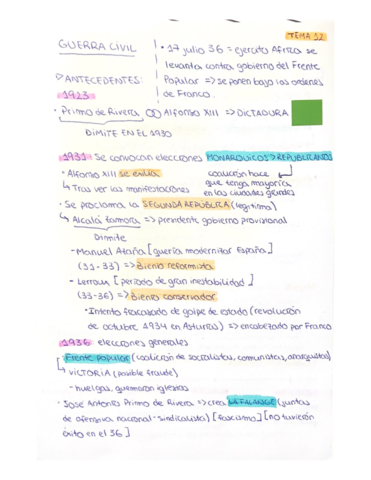 TEMA 12
GUERRA CIVIL
• 17 julio 36 = ejercito Africa se
levanta contra gobierno del Frente
Popular => se ponen bajo las ordenes
de Franco.
▷ ANTECEDENTES:
1923
• Primo de Rivera Alfonso XIII => DICTADURA
DIMITE EN EL 1930
1931 Se convocan elecciones MONARQUICOS > REPUBLICANOS
• Alfonso XIII se exilia
coalición hace
↳ Tras ver las manifestaciones
que tenga mayoría
en las ciudades grandes
• Se proclama la SEGUNDA REPÚBLICA (legitima)
↳ Alcalá Zamora => presidente gobierno provisional
Dimite
- Manuel Azaña [quería modernizar España]
(31-33) => Bienio reformista
- Lerroux [periodo de gran inestabilidad]
(33-36) => Bienio conservador
• Intento fracasado de golpe de estado (revolución
de octubre 1934 en Asturias) => encabezado por Franco
1936 elecciones generales
Frente popular (coalición de socialistas, comunistas, anarquistas)
↳ VICTORIA (posible fraude)
- huelgas, quemaron iglesias
• José Antonio Primo de Rivera => crea LA FALANGE (juntas
de ofensiva nacional-sindicalista) [fascismo] [no tuvieron
éxito en el 36]